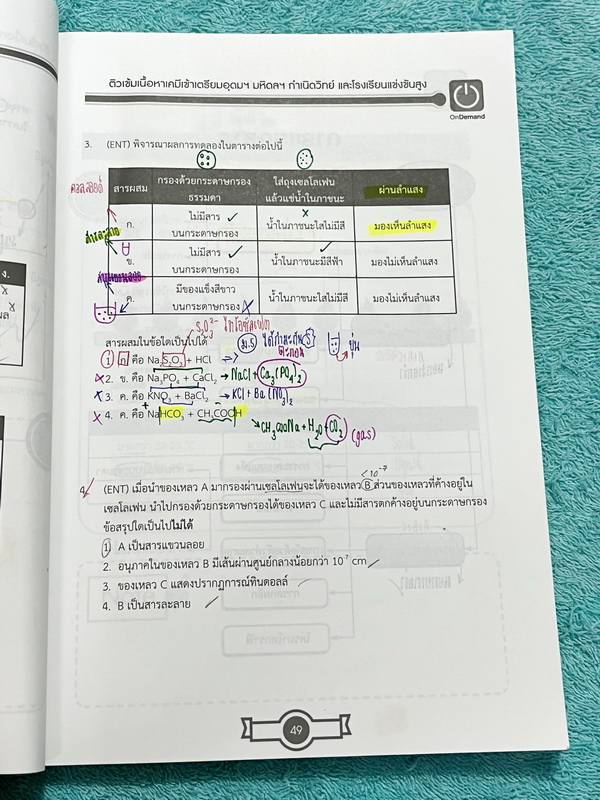 ติวเข้มเนื้อหาเคมีเข้าเตรียมอุดมฯ มหิดลฯ กำเนิดวิทย์ และโรงเรียนแข่งขันสูง
OnDemand
3. (ENT) พิจารณาผลการทดลองในตารางต่อไปนี้
คอลลอยด์
สารผสม
กรองด้วยกระดาษกรองธรรมดา
ใส่ถุงเซลโลเฟนแล้วแช่น้ำในภาชนะ
ผ่านลำแสง
ก.
ไม่มีสารบนกระดาษกรอง ✓
X น้ำในภาชนะใสไม่มีสี
มองเห็นลำแสง
สารละลาย
ข.
ไม่มีสารบนกระดาษกรอง ✓
✓ น้ำในภาชนะมีสีฟ้า
มองไม่เห็นลำแสง
สารแขวนลอย
ค.
มีของแข็งสีขาวบนกระดาษกรอง X
น้ำในภาชนะใสไม่มีสี
มองไม่เห็นลำแสง
S₂O₃²⁻ ไทโอซัลเฟต
สารผสมในข้อใดเป็นไปได้
1. ก คือ Na₂S₂O₃ + HCl ⇒
(ม.5) ได้กำมะถัน (S) ตะกอน
ขุ่น
X 2. ข. คือ Na₃PO₄ + CaCl₂ → NaCl + Ca₃(PO₄)₂
X 3. ค. คือ KNO₃ + BaCl₂ → KCl + Ba(NO₃)₂
X 4. ค. คือ NaHCO₃ + CH₃COOH
→ CH₃COONa + H₂O + CO₂ (gas)
< 10⁻⁷
4. (ENT) เมื่อนำของเหลว A มากรองผ่านเซลโลเฟนจะได้ของเหลว B ส่วนของเหลวที่ค้างอยู่ใน
เซลโลเฟน นำไปกรองด้วยกระดาษกรองได้ของเหลว C และไม่มีสารตกค้างอยู่บนกระดาษกรอง
ข้อสรุปใดเป็นไปไม่ได้
1. A เป็นสารแขวนลอย
2. อนุภาคในของเหลว B มีเส้นผ่านศูนย์กลางน้อยกว่า 10⁻⁷ cm
3. ของเหลว C แสดงปรากฏการณ์ทินดอลล์
4. B เป็นสารละลาย
49